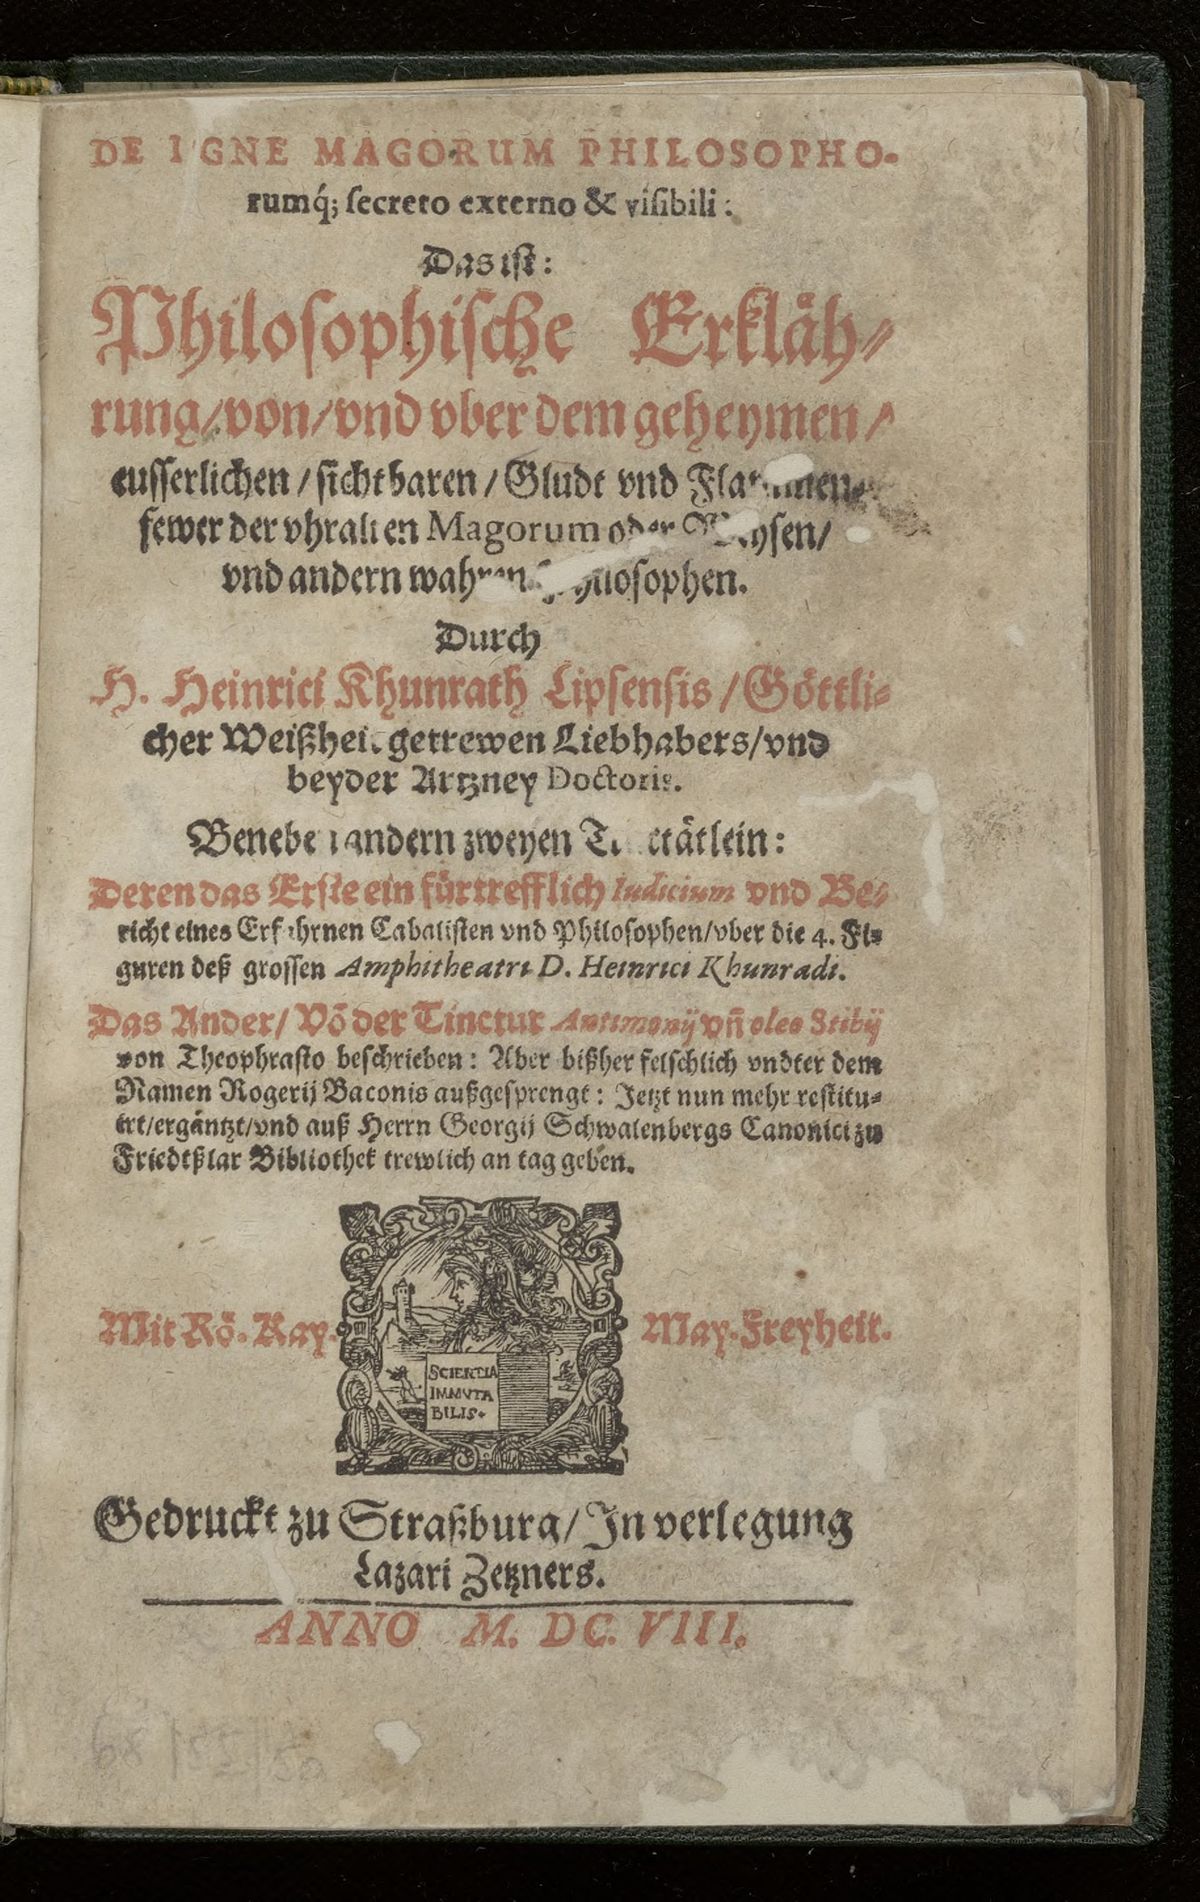 DE IGNE MAGORUM PHILOSOPHO-
rumq́; ſecreto externo & viſibili:
Das iſt:
Philoſophiſche Erklåh⸗
rung/von/vnd vber dem geheymen/
euſſerlichen/ſichtbaren/Gludt vnd
fewer der vhralten Magorum oder
vnd andern wahren Philoſophen.
Durch
H. Heinrici Khunrath Lipſenſis/Göttli⸗
cher Weißheit getrewen Liebhabers/vnd
beyder Artzney Doctoris.
Beneben andern zweyen Tractätlein:
Deren das Erſte ein fürtrefflich Iudicium vnd Be⸗
richt eines Erfahrnen Cabaliſten vnd Philoſophen/vber die 4. Fi⸗
guren deß groſſen Amphitheatri D. Heinrici Khunradi.
Das Ander/ Võ der Tinctur Antimonij vñ oleo Stibij
von Theophraſto beſchrieben: Aber bißher felſchlich vndter dem
Namen Rogerij Baconis außgeſprengt: Jetzt nun mehr reſtitu⸗
irt/ergäntzt/vnd auß Herrn Georgij Schwalenbergs Canonici zu
Friedtßlar Bibliothek trewlich an tag geben.
Mit Rö. Kay. May. Freyheit.
SCIENTIA
IMMVTA
BILIS.
Gedruckt zu Straßburg/In verlegung
Lazari Zetzners.
ANNO M. DC. VIII.